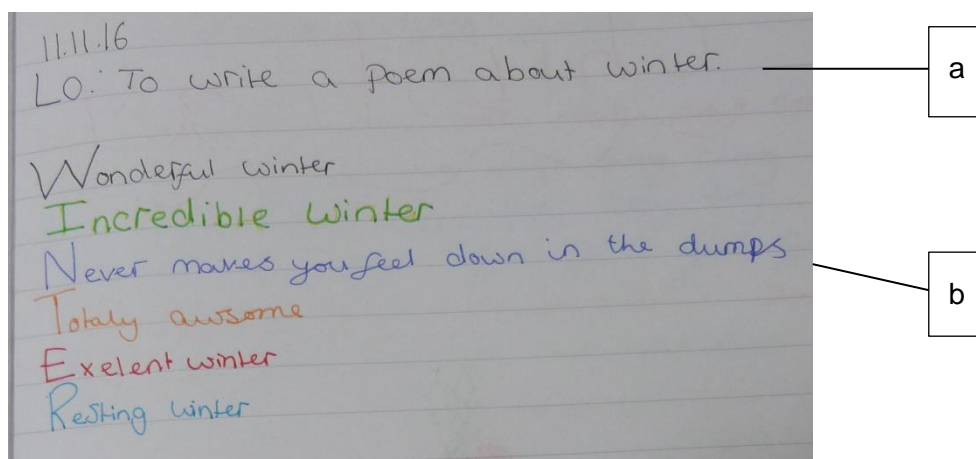 11.11.16
LO: To write a poem about winter.
a
Wonderful winter
Incredible winter
Never makes you feel down in the dumps
b
Totaly awsome
Exelent winter
Resting winter